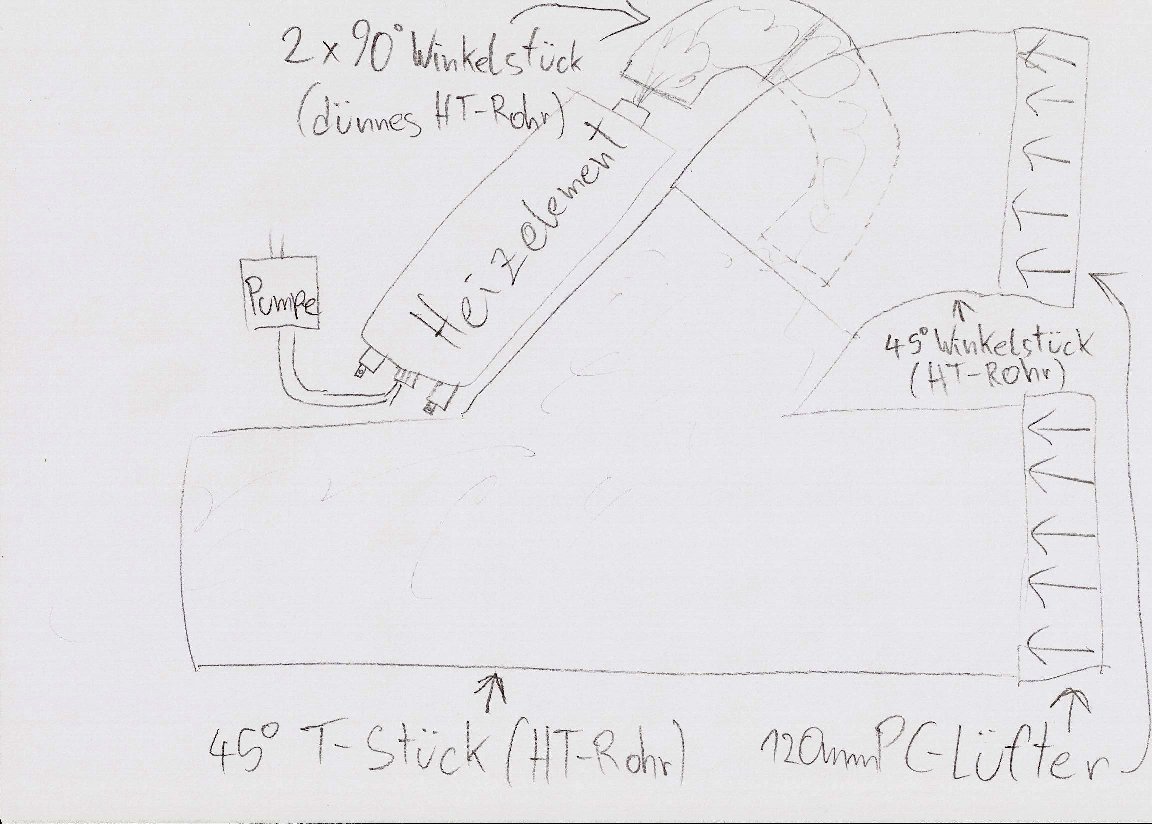 2 x 90° Winkelstück
(dünnes HT-Rohr)
Heizelement
Pumpe
45° Winkelstück
(HT-Rohr)
45° T-Stück (HT-Rohr)
120mm PC-Lüfter